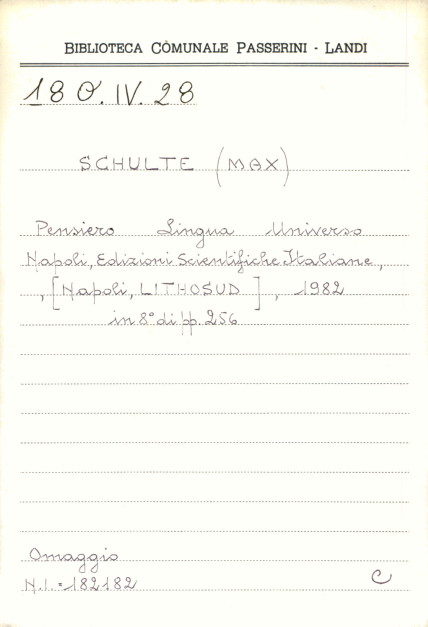 BIBLIOTECA COMUNALE PASSERINI - LANDI
18 O. IV. 28
SCHULTE (MAX)
Pensiero Lingua Universo
Napoli, Edizioni Scientifiche Italiane,
, [Napoli, LITHOSUD ] , 1982
in 8° di pp. 256
Omaggio
N.I. = 182182
C